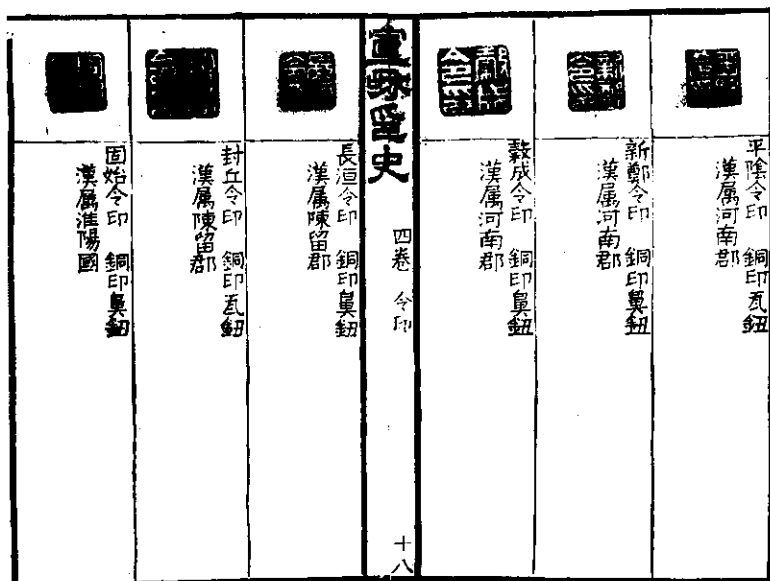 平陰令印　銅印瓦鈕
漢属河南郡
新鄭令印　銅印鼻鈕
漢属河南郡
穀成令印　銅印鼻鈕
漢属河南郡
宣和印史　四卷　令印　十八
長洹令印　銅印鼻鈕
漢属陳留郡
封丘令印　銅印瓦鈕
漢属陳留郡
固始令印　銅印鼻鈕
漢属淮陽國